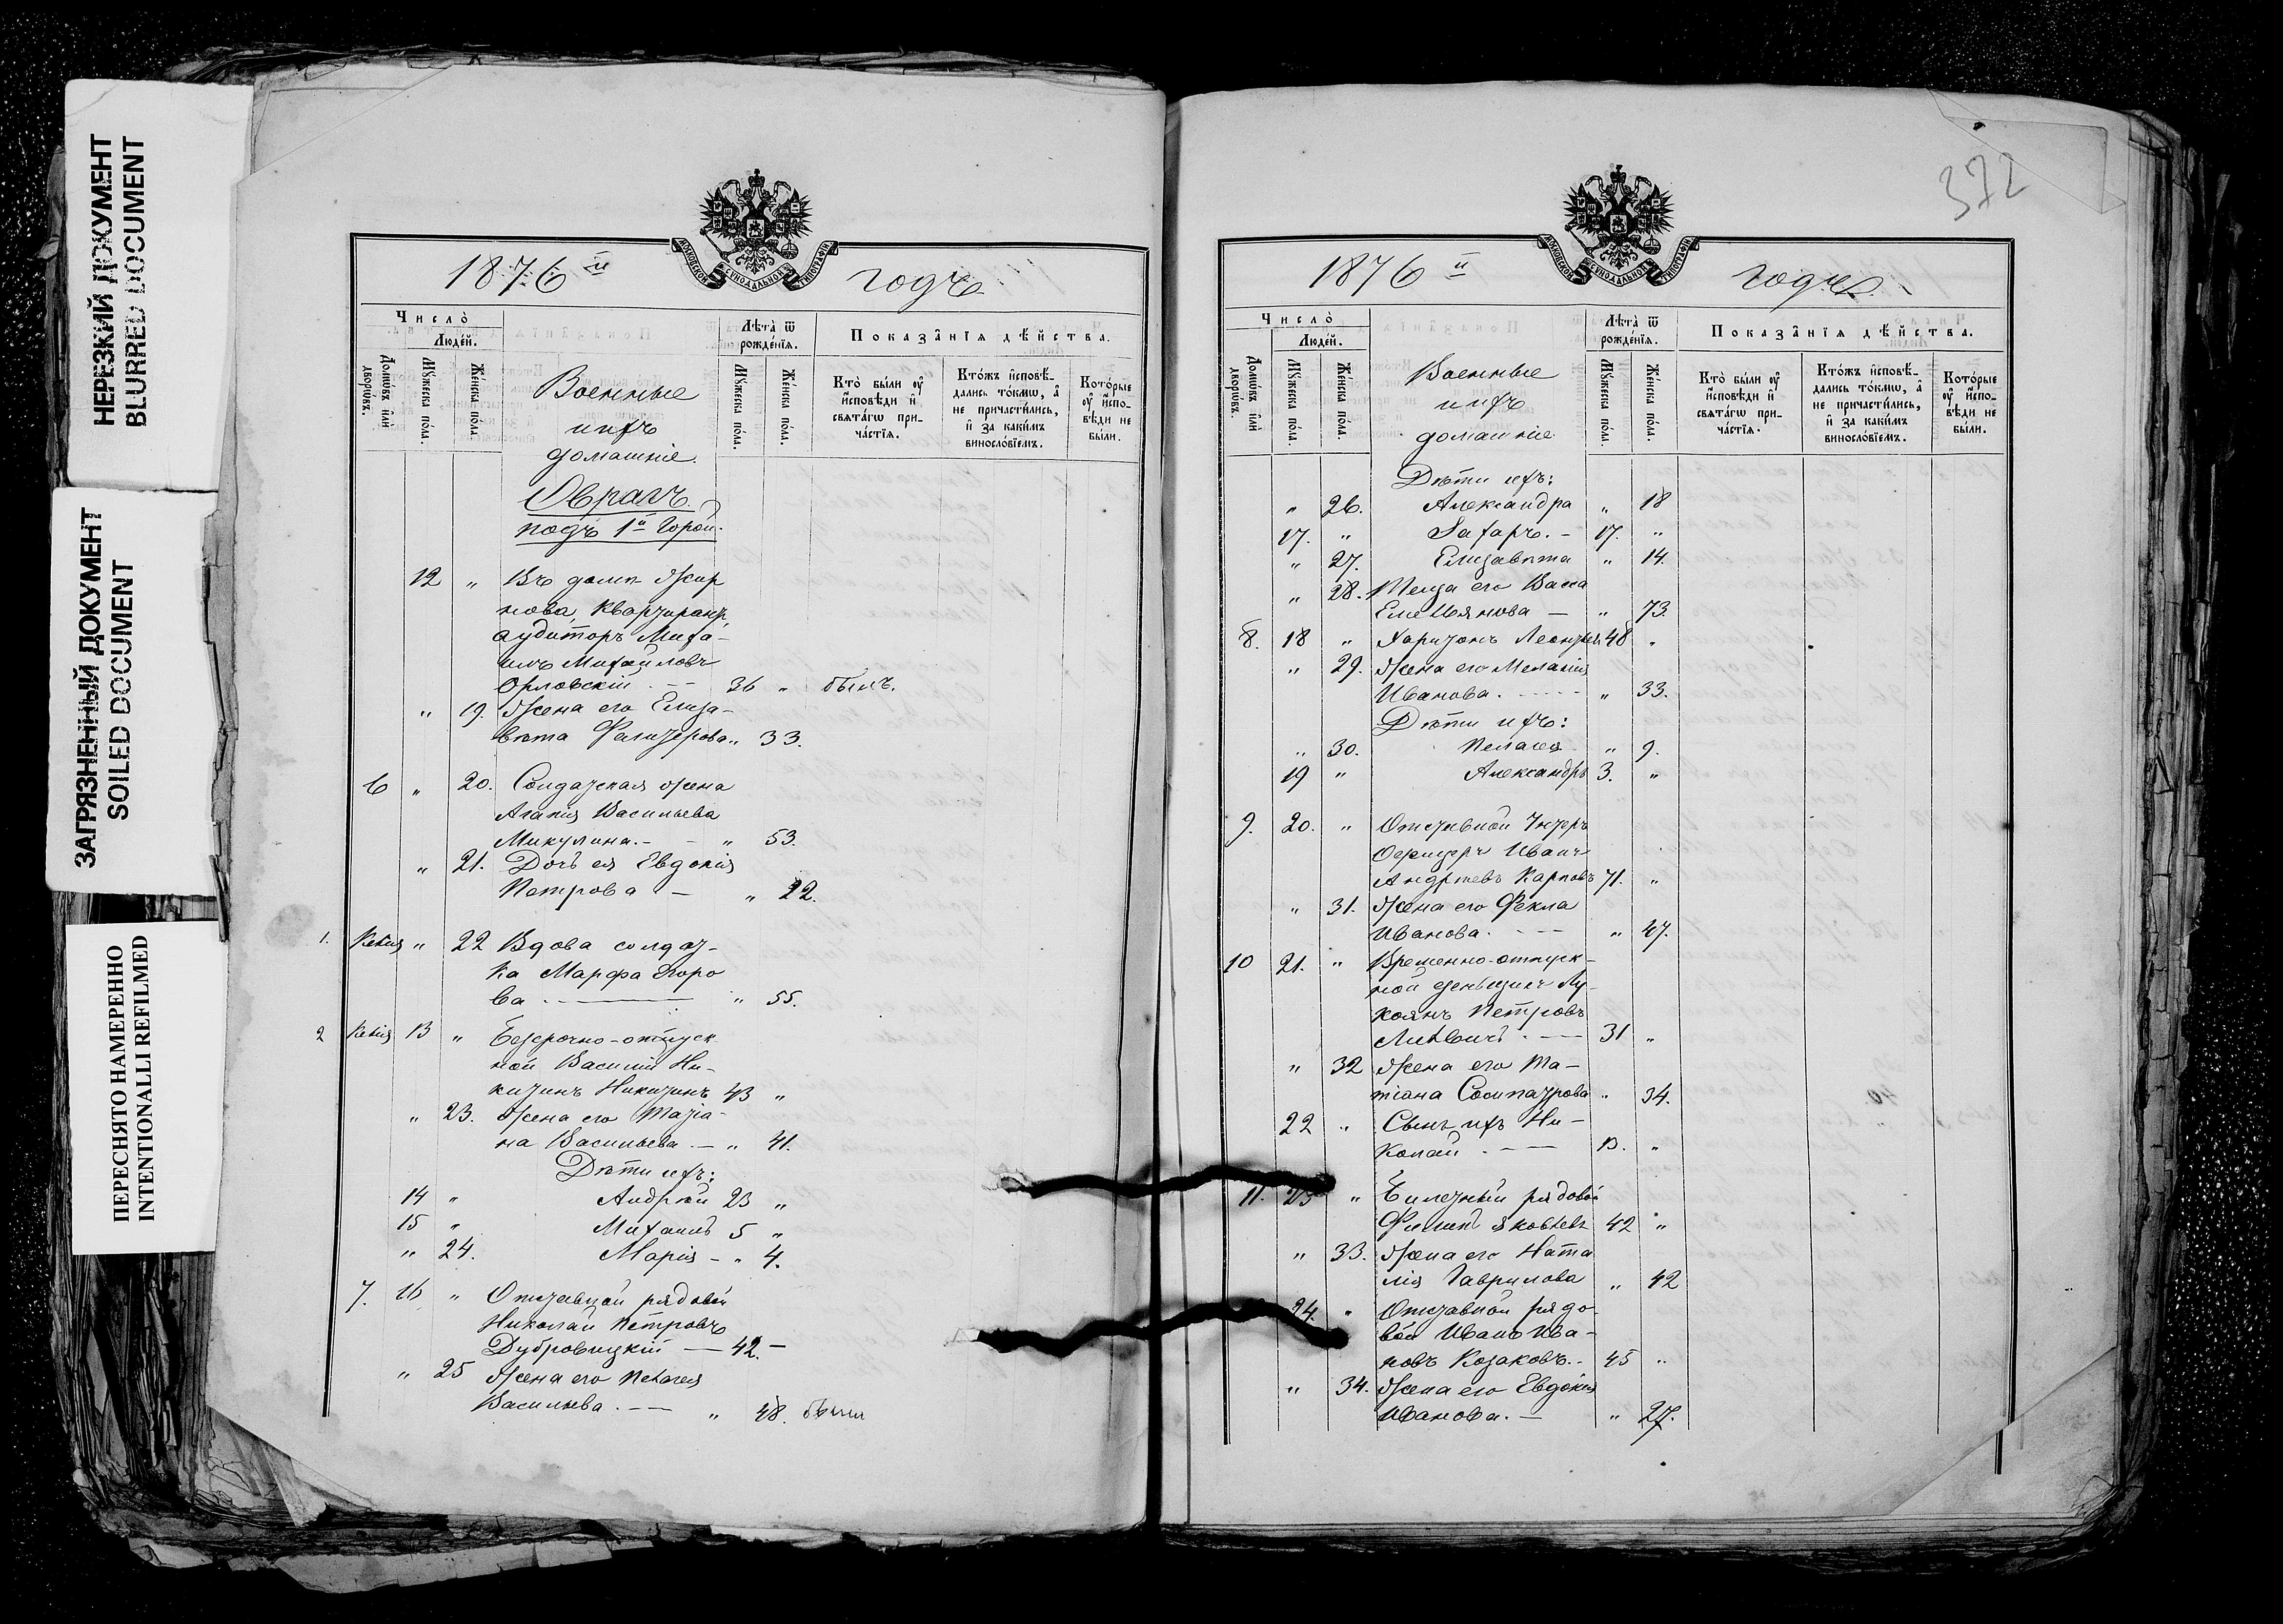 НЕРЕЗКИЙ ДОКУМЕНТ
BLURRED DOCUMENT
ЗАГРЯЗНЕННЫЙ ДОКУМЕНТ
SOILED DOCUMENT
ПЕРЕСНЯТО НАМЕРЕННО
INTENTIONALLI REFILMED
МОСКОВСКОЙ СѴНОДАЛЬНОЙ ТИПОГРАФІИ
1876 й годъ
Число̀
Людéй.
Домѡ́въ и҆лѝ дворѡ́въ.
Мꙋ́жеска по́ла.
Же́нска по́ла.
Военные
ихъ
домашніе.
Лѣта̀ ѿ рожде́нїѧ.
Мꙋ́жеска по́ла.
Же́нска по́ла.
Показа̑нїѧ дѣ́йства.
Кто̀ бы́ли ᲂу҆ и҆сповѣ́ди и҆ свѧта́гѡ прича́стїѧ.
Кто́жъ и҆сповѣ́дались то́кмѡ, а҆ не причасти́лись, и҆ за каки́мъ винословїемъ.
Кото́рые ᲂу҆ и҆сповѣ́ди не бы́ли.
Оврагъ
подъ 1й Горой.
12 " Въ домѣ Жир
нова, Квартирант
аудиторъ Миха-
илъ Михайловъ
Орловскій - 36 " былъ.
" 19. Жена его Елиза-
вѣта " 33.
6 " 20. Солдатская жена
Агапія Васильева
Микулина - " 53.
" 21. Дочь ея Евдокія
Петрова - " 22.
1. " 22 Вдова солдат-
ка Марфа
ва - " 55.
2 13 " Безсрочно-отпуск
ной Василій Ни-
китинъ Никитинъ 43 "
" 23. Жена его Татіа-
на Васильева - " 41.
Дѣти ихъ:
14 " Андрей 23 "
15 " Михаилъ 5 "
" 24. Марія - " 4.
7. 16 " Отставной рядовой
Николай Петровъ
Дубровицкій - 42. -
" 25 Жена его Пелагея
Васильева - " 48. были
372
1876 й годъ
Число̀
Людéй.
Домѡ́въ и҆лѝ дворѡ́въ.
Мꙋ́жеска по́ла.
Же́нска по́ла.
Военные
ихъ
домашніе
Лѣта̀ ѿ рожде́нїѧ.
Мꙋ́жеска по́ла.
Же́нска по́ла.
Показа̑нїѧ дѣ́йства.
Кто̀ бы́ли ᲂу҆ и҆сповѣ́ди и҆ свѧта́гѡ прича́стїѧ.
Кто́жъ и҆сповѣ́дались то́кмѡ, а҆ не причасти́лись, и҆ за каки́мъ винословїемъ.
Кото́рые ᲂу҆ и҆сповѣ́ди не бы́ли.
Дѣти ихъ:
" 26. Александра " 18
17. " Захаръ. - 17. "
" 27. Елизавета " 14.
" 28. Теща его Васса
Емельянова - " 73.
8. 18 " Харитонъ Леонтьев 48 "
" 29. Жена его Меланія
Иванова. - " 33.
Дѣти ихъ:
" 30. Пелагея " 9.
19 " Александръ 3. "
9. 20. " Отставной Унтеръ
Офицеръ Иванъ
Андреевъ Карповъ 71. "
" 31. Жена его Фекла
Иванова. - " 47.
10 21. " Временно-отпуск-
ной деньщикъ Лу-
коянъ Петровъ
31 "
" 32 Жена его Та-
тіана Сосипатрова " 34.
22 " Сынъ ихъ Ни-
колай - 13. "
11. 23 " Билетный рядовой
Филипъ Яковлевъ 42 "
" 33. Жена его Ната
лія Гаврилова " 42
24. " Отставной рядо-
вой Иванъ Ива-
новъ Козаковъ. - 45 "
" 34. Жена его Евдокія
Иванова. - " 27.